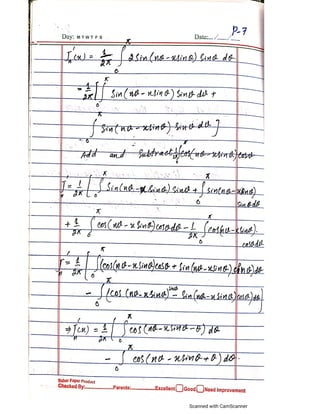 P-7
Day: M T W T F S Date:
J'ₙ(x) = 1/2π ∫₀^π 2 Sin(nθ - xSinθ) Sinθ dθ
= 1/2π [∫₀^π Sin(nθ - xSinθ) Sinθ dθ +
∫₀^π Sin(nθ - xSinθ) Sinθ dθ]
Add and Subtract cos(nθ - xSinθ) cosθ
J'ₙ = 1/2π [∫₀^π Sin(nθ - xSinθ) Sinθ + ∫₀^π Sin(nθ - xSinθ)
Sinθ dθ
+ 1/2π ∫₀^π cos(nθ - xSinθ) cosθ dθ - 1/2π ∫₀^π cos(nθ - xSinθ).
cosθ dθ
J'ₙ = 1/2π [∫₀^π (cos(nθ - xSinθ) cosθ + Sin(nθ - xSinθ) Sinθ) dθ
- ∫₀^π (cos(nθ - xSinθ) - Sin(nθ - xSinθ) dθ]
⇒ J'ₙ(x) = 1/2π [∫₀^π cos(nθ - xSinθ - θ) dθ
- ∫₀^π cos(nθ - xSinθ + θ) dθ.
Rubar Paper Product
Checked By: Parents: Excellent Good Need Improvement
Scanned with CamScanner